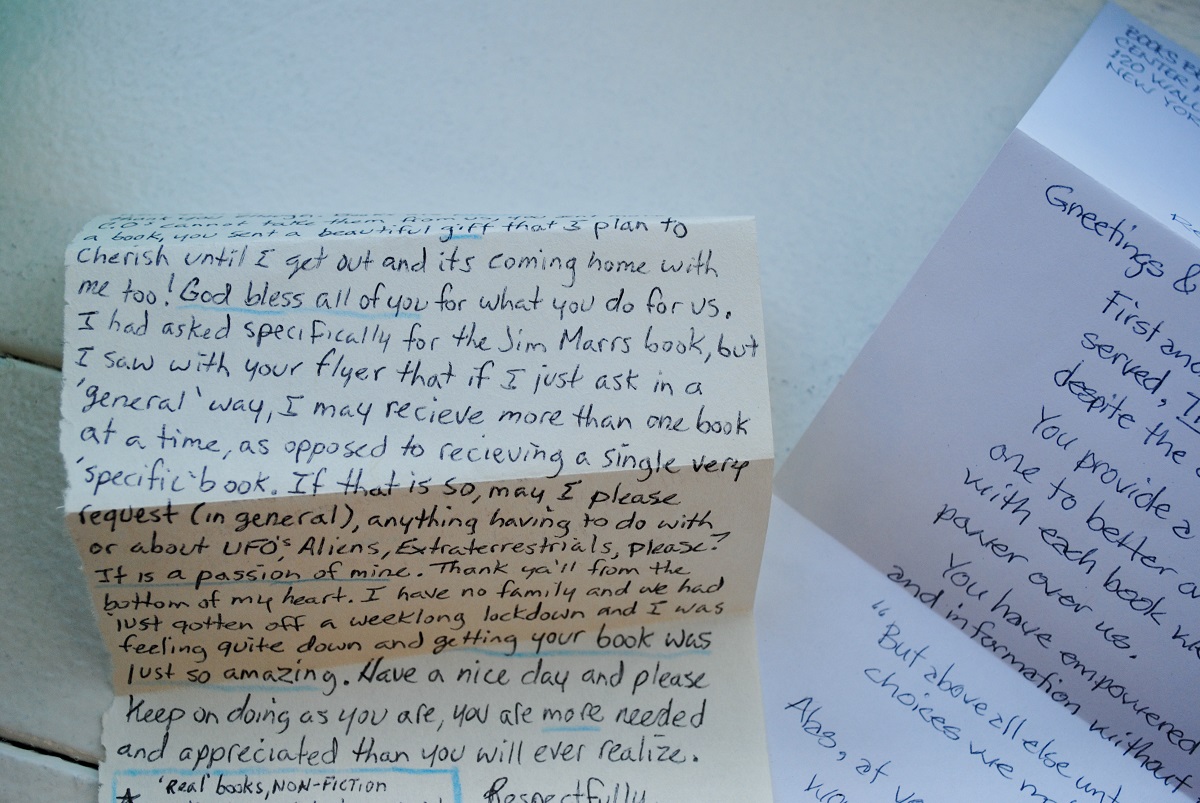 C.O's cannot take them from
a book, you sent a beautiful gift that I plan to
Cherish until I get out and its coming home with
me too! God bless all of you for what you do for us.
I had asked specifically for the Jim Marrs book, but
I saw with your flyer that if I just ask in a
'general' way, I may recieve more than one book
at a time, as opposed to recieving a single very
'specific' book. If that is so, may I please
request (in general), anything having to do with
or about UFO's, Aliens, Extraterrestrials, please?
It is a passion of mine. Thank ya'll from the
bottom of my heart. I have no family and we had
just gotten off a weeklong lockdown and I was
feeling quite down and getting your book was
just so amazing. Have a nice day and please
Keep on doing as you are, you are more needed
and appreciated than you will ever realize.
'Real' books, NON-FICTION
Respectfully,
BOOKS
CENTER
120
NEW YOR
Greetings &
First and
served, I
despite the
You provide a
one to better
with each book
power over us.
You have empowered
and information without
"But above all else
choices we
Also, at